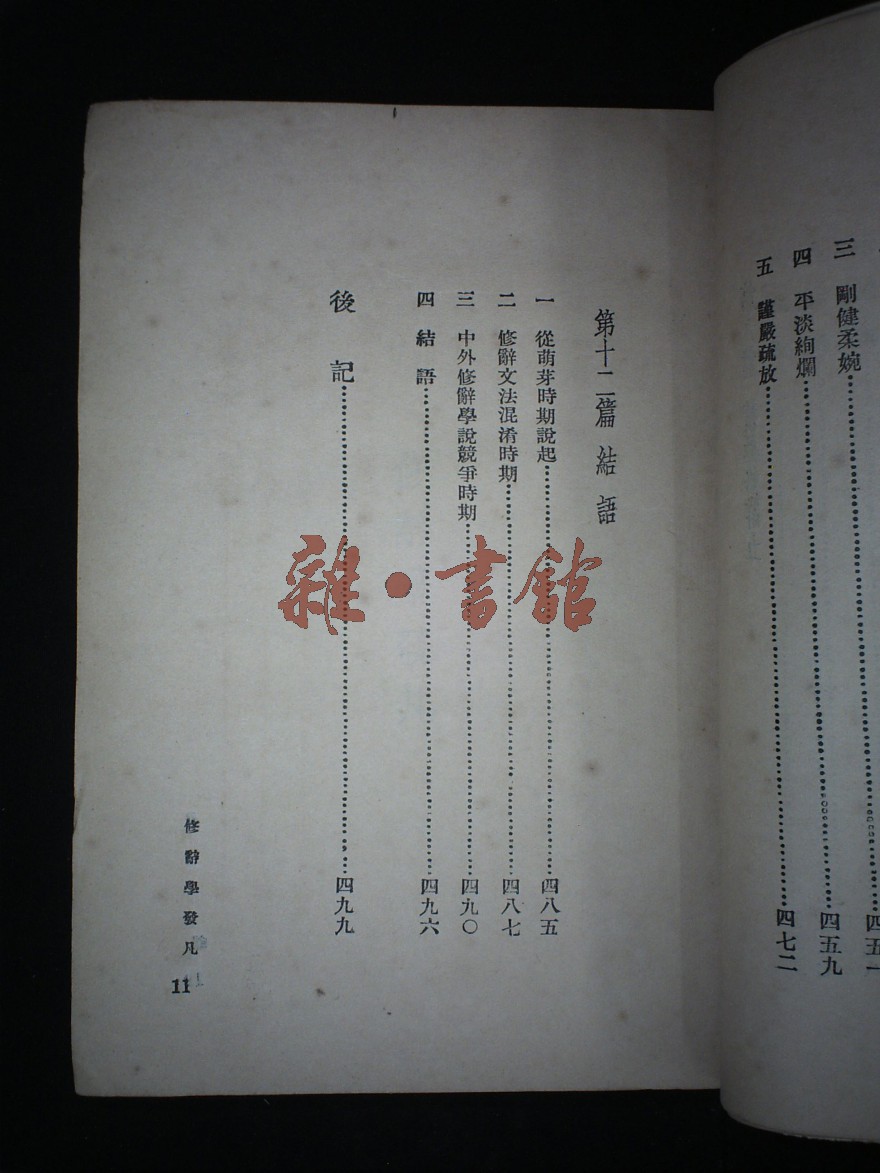 三　剛健柔婉……四五一
四　平淡絢爛……四五九
五　謹嚴疏放……四七二
第十二篇　結語
一　從萌芽時期說起……四八五
二　修辭文法混淆時期……四八七
三　中外修辭學說競爭時期……四九〇
四　結語……四九六
後記……四九九
修辭學發凡
11
雜·書館